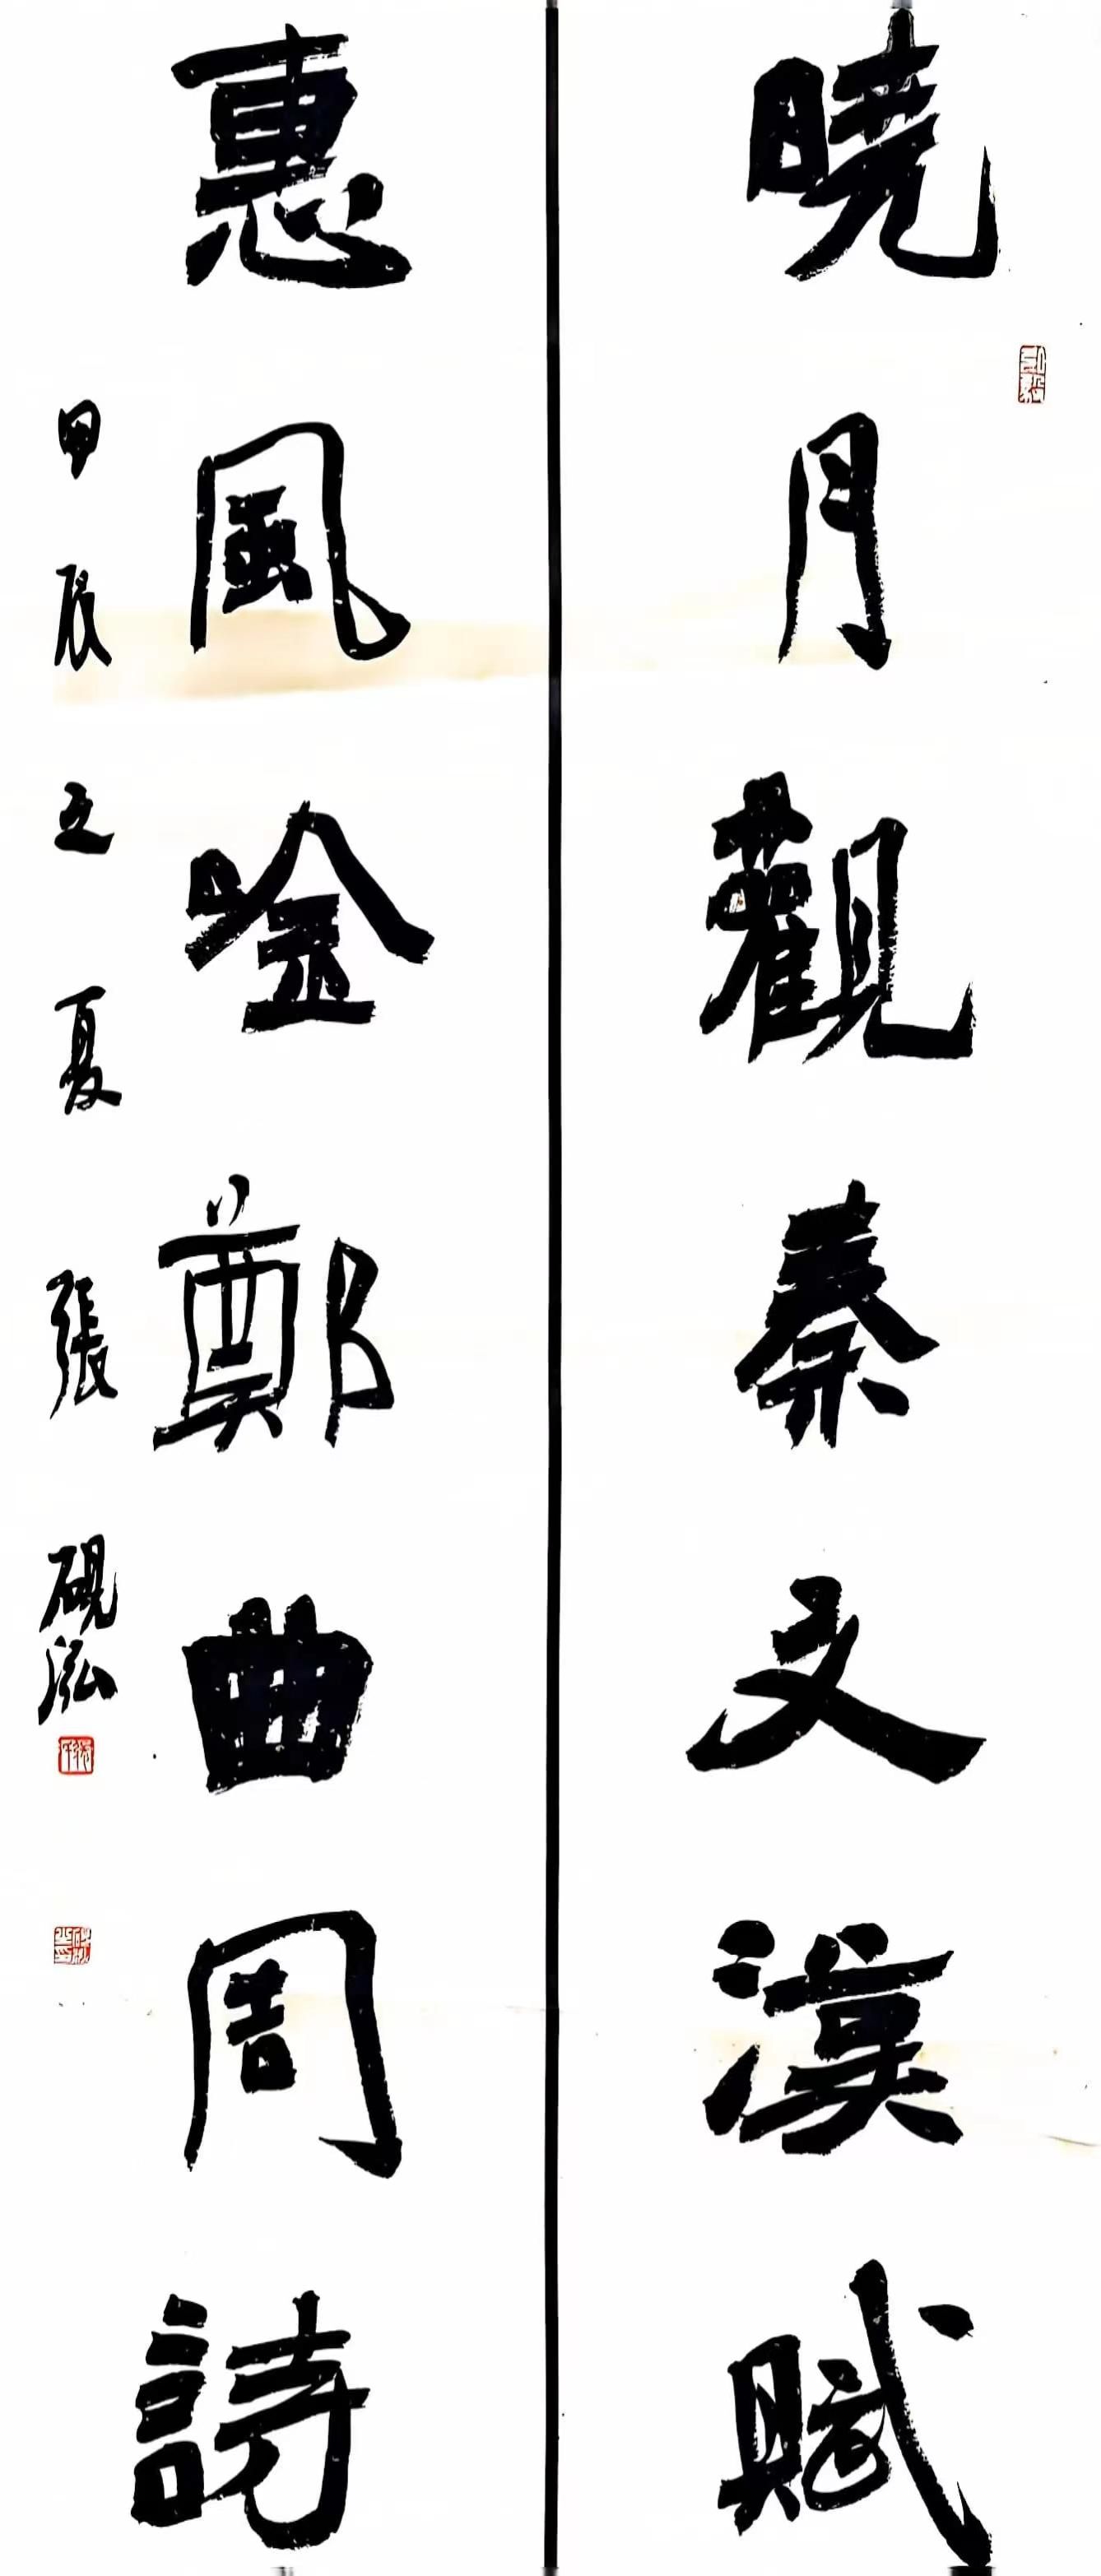 曉月觀秦文漢賦
惠風唫鄭曲周詩
甲辰之夏張硯泓